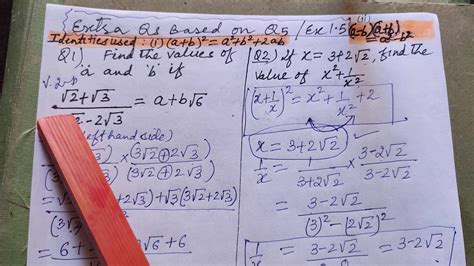 Extra Qs Based on Q5 / Ex 1.5
Identities used: (i) (a+b)² = a²+b²+2ab
(ii) (a-b)(a+b) = a²-b²
Q1) Find the values of
'a' and 'b' if
√2+√3 / 2-2√3 = a+b√6
left hand side)
(3√2+2√3)
(3√2+2√3)
2√3)+√3(3√2+2√3)
3√6+6
Q2) if x = 3+2√2, find the
value of x²+1/x²
(x+1/x)² = x²+1/x²+2
x = 3+2√2
1/x = 1/3+2√2 × 3-2√2/3-2√2
= 3-2√2/(3)²-(2√2)²
1/x = 3-2√2 = 3-2√2